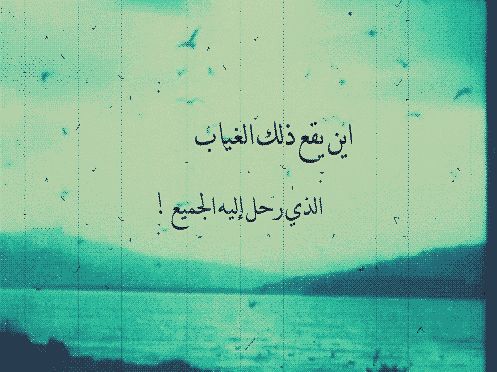 اين يقع ذلك الغياب
الذي رحل إليه الجميع !